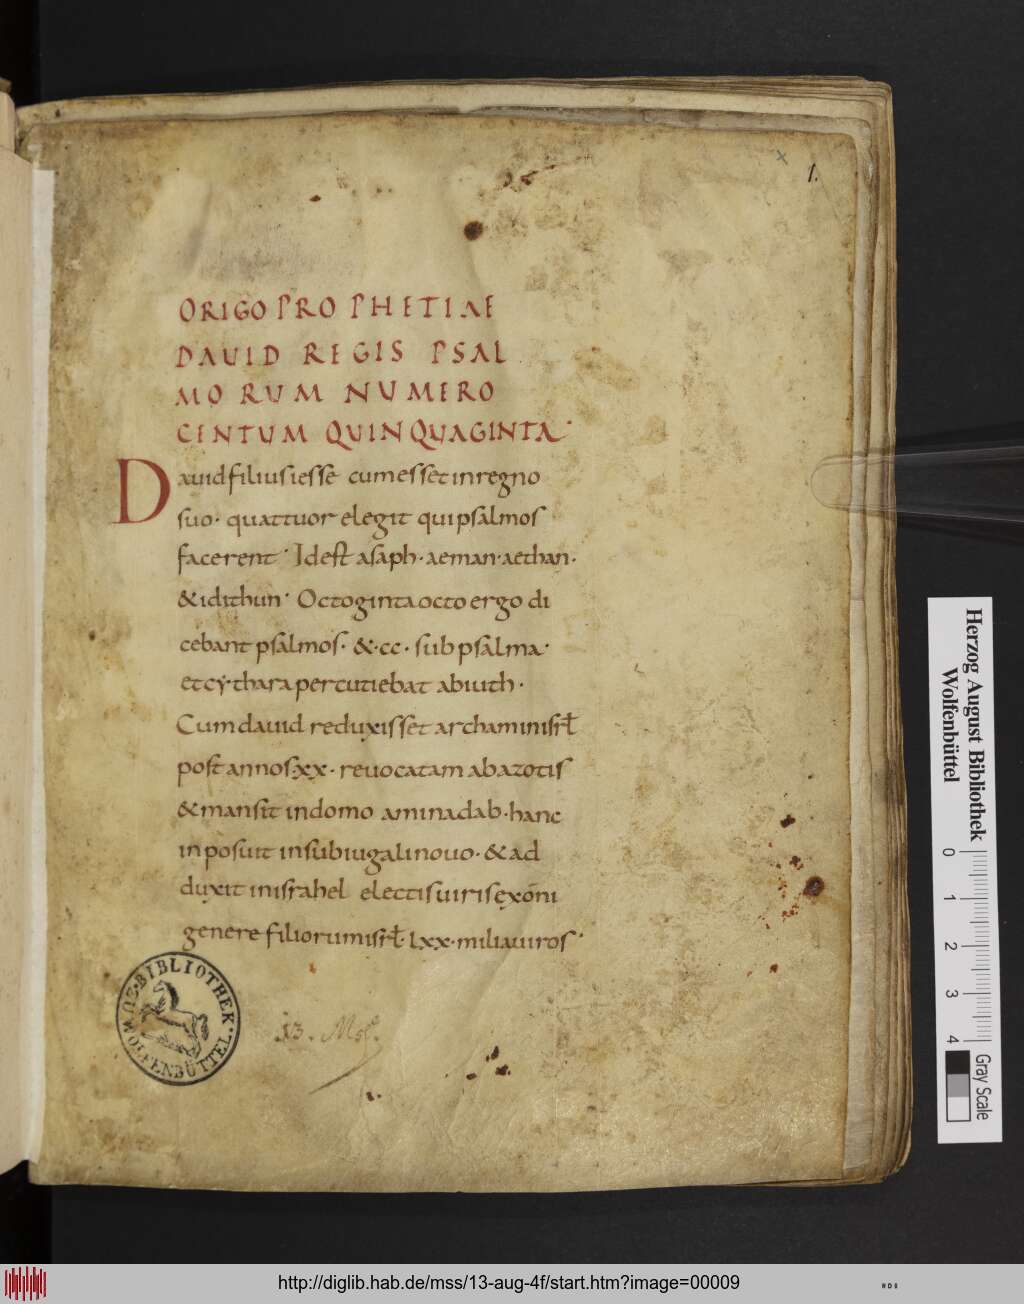 1.
ORIGO PROPHETIAE
DAUID REGIS PSAL
MORUM NUMERO
CENTUM QUINQUAGINTA·
Dauid filius iesse cum esset in regno
suo· quattuor elegit qui psalmos
facerent· Idest asaph· aeman· aethan·
& idithun· Octoginta octo ergo di
cebant psalmos· &·cc· subpsalma·
et cythara percutiebat abiuth·
Cum dauid reduxisset archam in isrł
post annos xx· reuocatam ab azotis
& mansit in domo aminadab· hanc
inposuit in subiugali nouo· & ad
duxit in israhel electis uiris ex om̄i
genere filiorum isrł· lxx· milia uiros·
WOLFENBÜTTEL. BIBLIOTHEK.
13. Msc.
Herzog August Bibliothek
Wolfenbüttel
0 1 2 3 4
Gray Scale
http://diglib.hab.de/mss/13-aug-4f/start.htm?image=00009